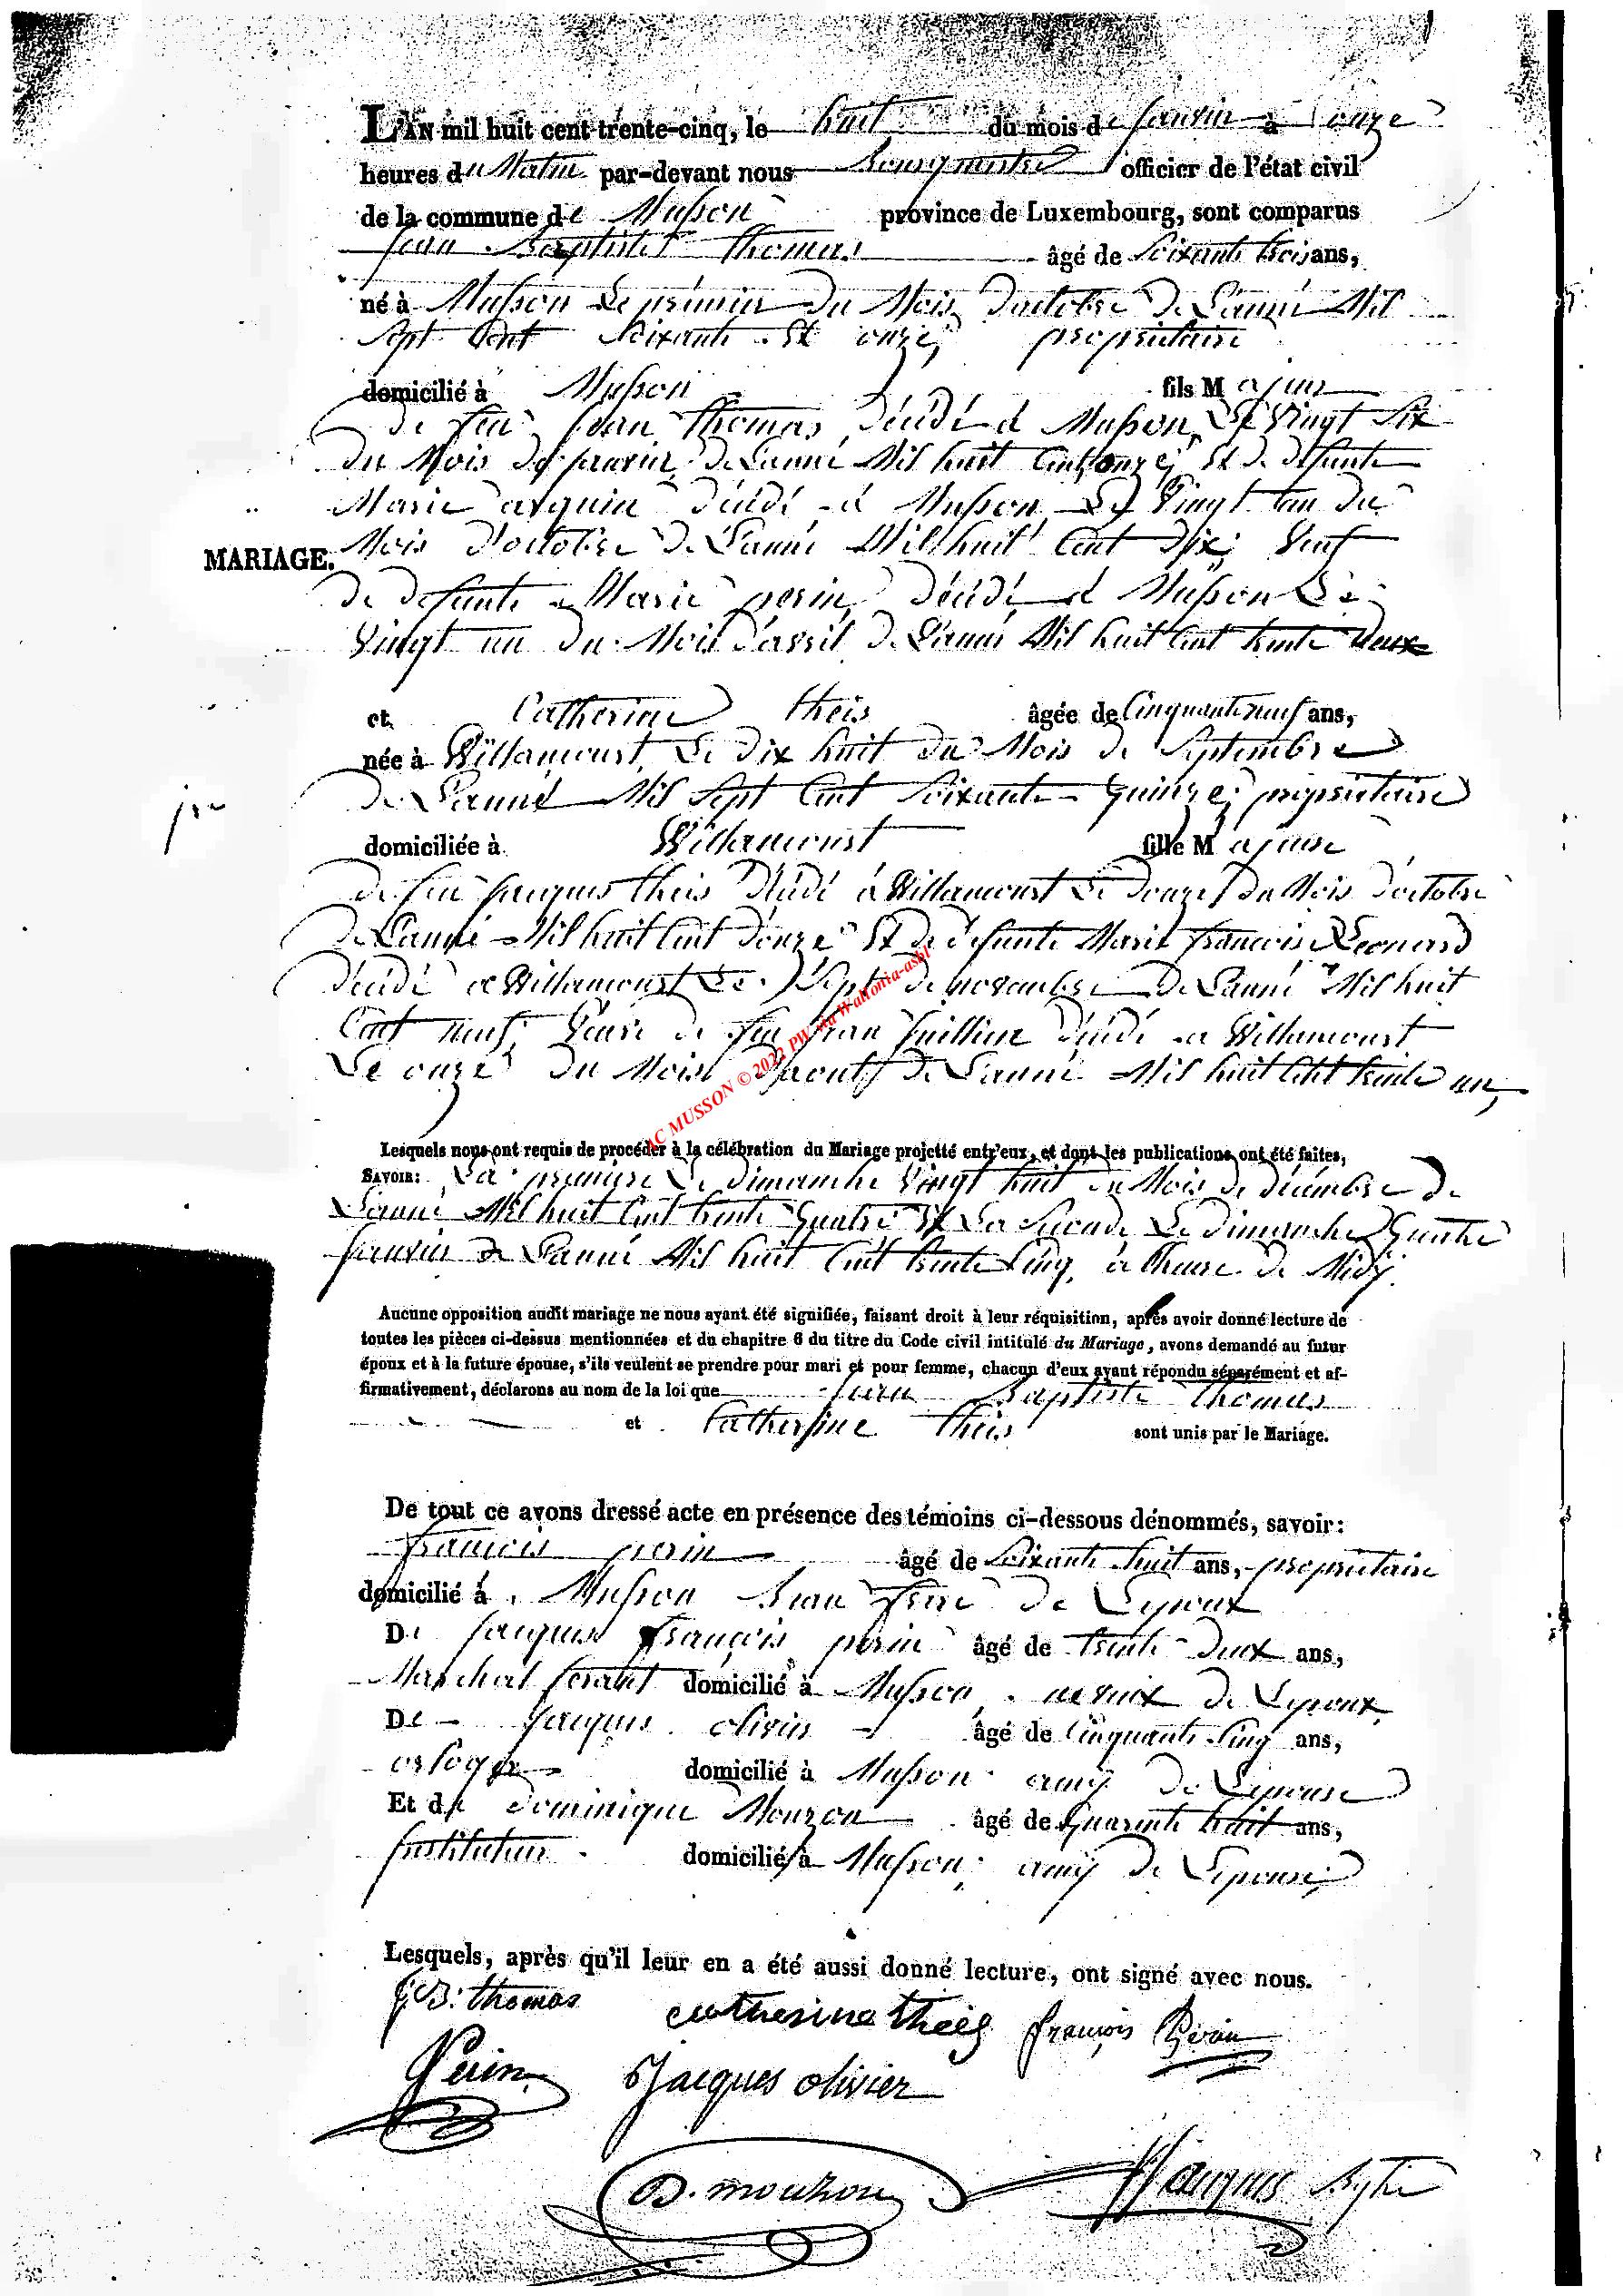 L'AN mil huit cent trente-cinq, le huit du mois de janvier à onze
heures du Matin par-devant nous Bourgmestre officier de l'état civil
de la commune de Musson province de Luxembourg, sont comparus
Jean Baptiste thomas âgé de Soixante trois ans,
né à Musson Le prémier du Mois d'octobre De L'année Mil
Sept Cent Soixante Et onze, propriétaire
domicilié à Musson fils Majeur
De feu Jean thomas décédé à Musson, Le Vingt Six
du Mois de janvier De L'anné Mil huit Cent onze; Et de défunte
Marie arquin décédé à Musson Le Vingt un du
MARIAGE. Mois D'octobre De L'anné Mil huit Cent Dix; Veuf
De défunte Marie perin, décédé à Musson Le
Vingt un du Mois d'avril De L'année Mil huit Cent trente Deux
et Catherine theis âgée de Cinquante neuf ans,
née à Willancourt Le dix huit du Mois de Septembre
De L'anné Mil Sept Cent Soixante quinze; propriétaire
domiciliée à Willancourt fille Majeure
de feu jacques theis décédé à Willancourt Le douze du Mois d'octobre
De L'anné Mil huit Cent douze Et De défunte Marie françoise Leonard
décédé à Willancourt Le Sept de novembre De L'anné Mil huit
Cent neuf; Veuve de feu jean décédé a Willancourt
Le onze du Mois D'aoust De L'anné Mil huit Cent trente un,
AC MUSSON © 2022 PW via Wallonia-asbl
Lesquels nous ont requis de procéder à la célébration du Mariage projetté entr'eux, et dont les publications ont été faites,
SAVOIR: La premiere Le dimanche Vingt huit du Mois de décembre De
L'anné Mil huit Cent trente Quatre Et La Seconde Le dimanche Quatre
janvier De L'anné Mil huit Cent trente Cinq, à l'heure De Midÿ.
Aucune opposition audit mariage ne nous ayant été signifiée, faisant droit à leur réquisition, après avoir donné lecture de
toutes les pièces ci-dessus mentionnées et du chapitre 6 du titre du Code civil intitulé du Mariage, avons demandé au futur
époux et à la future épouse, s'ils veulent se prendre pour mari et pour femme, chacun d'eux ayant répondu séparément et af-
firmativement, déclarons au nom de la loi que Jean Baptiste thomas
et Catherine theis sont unis par le Mariage.
De tout ce avons dressé acte en présence des témoins ci-dessous dénommés, savoir:
françois perin âgé de Soixante huit ans, propriétaire
domicilié à Musson Beau frere De Lepoux
De Jacques françois perin âgé de trente Deux ans,
Marchal ferant domicilié à Musson, neveux De Lepoux,
De Jacques olivier âgé de Cinquante Cinq ans,
orloger domicilié à Musson amÿ De Lepouse
Et de dominique Mouzon âgé de Quarente huit ans,
Instituteur domicilié à Musson; amÿ De Lepouse;
Lesquels, après qu'il leur en a été aussi donné lecture, ont signé avec nous.
J.B: thomas catherine theis françois Perin
Perin Jacques olivier
D. mouzon